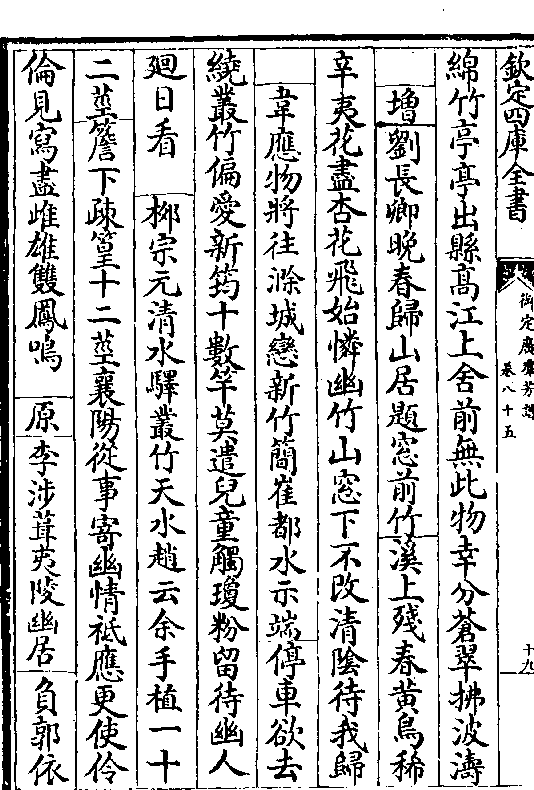 欽定四庫全書
御定廣羣芳譜
卷八十五
十九
綿竹亭亭出縣髙江上舍前無此物幸分蒼翠拂波濤
増劉長卿晚春歸山居題窓前竹溪上殘春黄鳥稀
辛夷花盡杏花飛始憐幽竹山窓下不改清隂待我歸
韋應物將往滁城戀新竹簡崔都水示端停車欲去
繞叢竹偏愛新筠十數竿莫遣兒童觸瓊粉留待幽人
廻日看 栁宗元清水驛叢竹天水趙云余手植一十
二莖簷下疎篁十二莖襄陽從事寄幽情祗應更使伶
倫見寫盡雌雄雙鳳鳴 原李涉葺夷陵幽居 負郭依